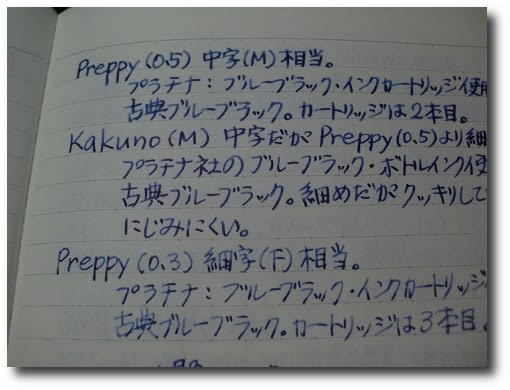 Preppy (0.5) 中字(M)相当。
プラチナ：ブルーブラック・インクカートリッジ使用
古典ブルーブラック。カートリッジは2本目。
Kakuno (M) 中字だが Preppy(0.5)より細
プラチナ社のブルーブラック・ボトルインク使
古典ブルーブラック。細めだがクッキリして
にじみにくい。
Preppy (0.3) 細字(F)相当。
プラチナ：ブルーブラック・インクカートリッジ
古典ブルーブラック。カートリッジは3本目。